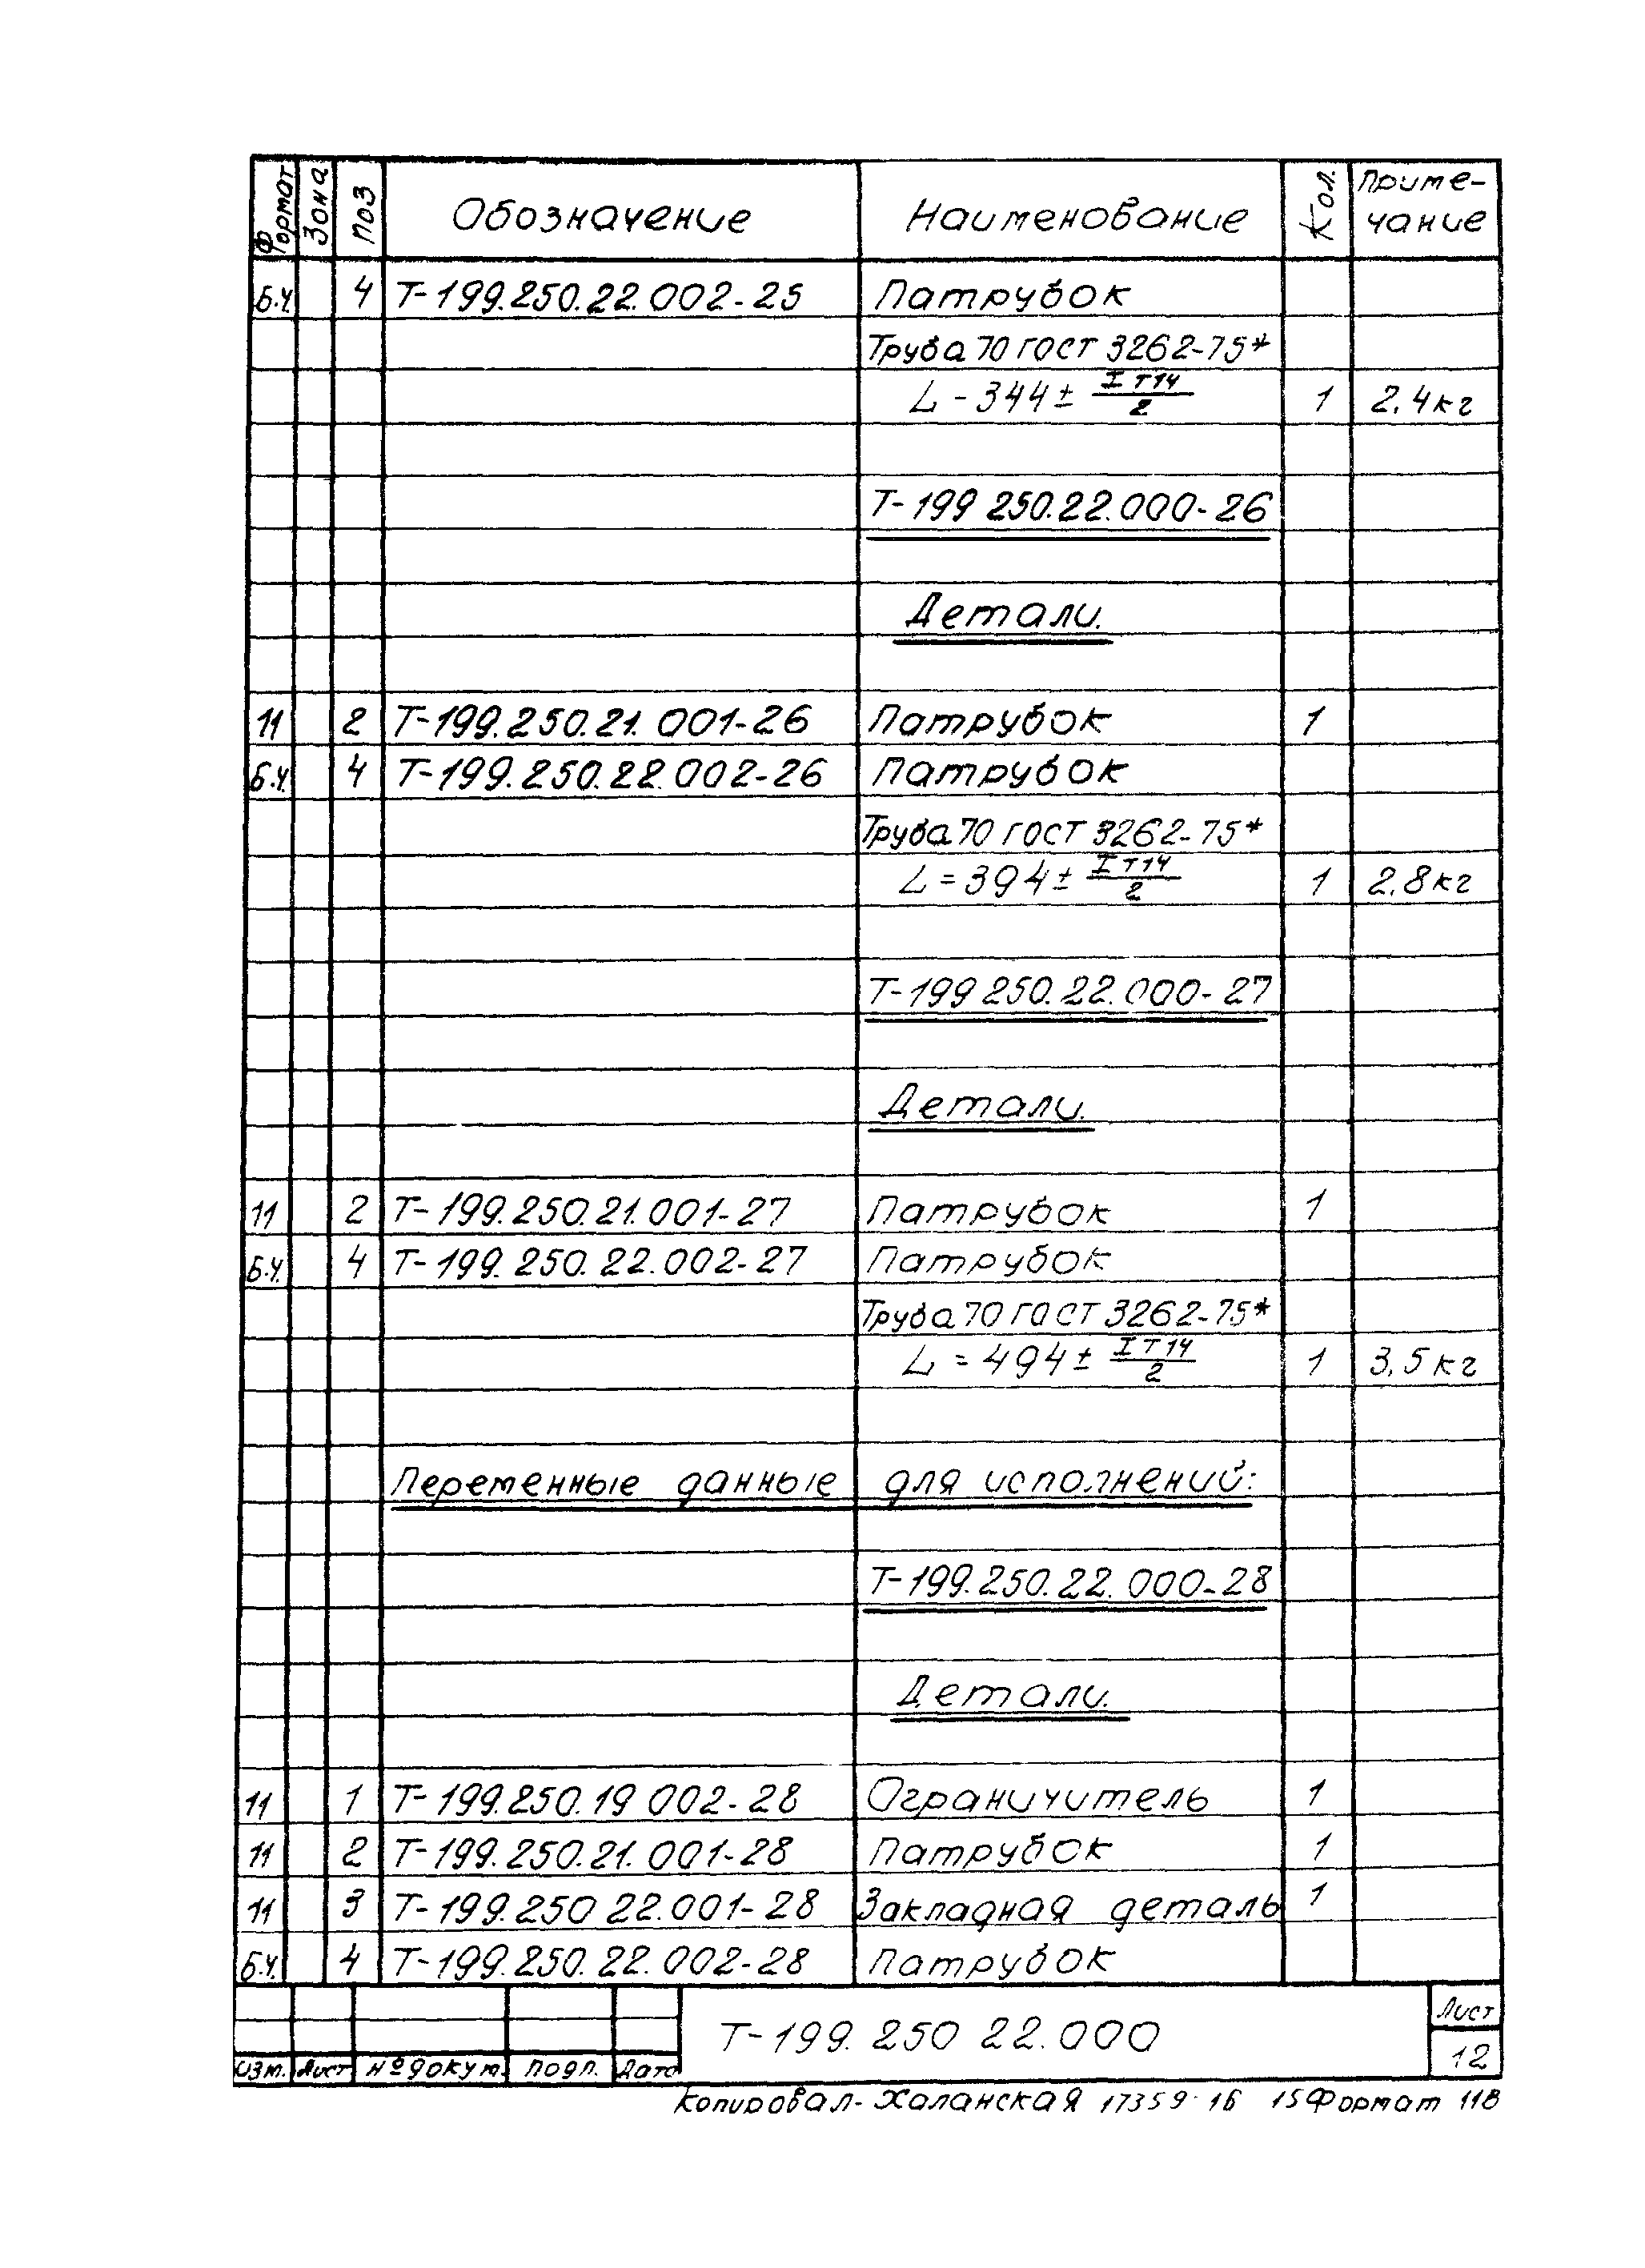 Формат Зона Поз Обозначение Наименование Кол. Приме-
чание
Б.Ч. 4 Т-199.250.22.002-25 Патрубок
Труба 70 ГОСТ 3262-75*
L - 344 ± IT14/2 1 2,4 кг
Т-199 250.22.000-26
Детали.
11 2 Т-199.250.21.001-26 Патрубок 1
Б.Ч. 4 Т-199.250.22.002-26 Патрубок
Труба 70 ГОСТ 3262-75*
L = 394 ± IT14/2 1 2,8 кг
Т-199 250.22.000-27
Детали.
11 2 Т-199.250.21.001-27 Патрубок 1
Б.Ч. 4 Т-199.250.22.002-27 Патрубок
Труба 70 ГОСТ 3262-75*
L = 494 ± IT14/2 1 3,5 кг
Переменные данные для исполнений:
Т-199.250.22.000-28
Детали.
11 1 Т-199.250.19 002-28 Ограничитель 1
11 2 Т-199.250.21.001-28 Патрубок 1
11 3 Т-199.250 22.001-28 Закладная деталь 1
Б.Ч. 4 Т-199.250.22.002-28 Патрубок
Т-199.250 22.000 Лист
12
Изм. Лист № докум. Подп. Дата
Копировал- Халанская 17359-16 15 Формат 11В